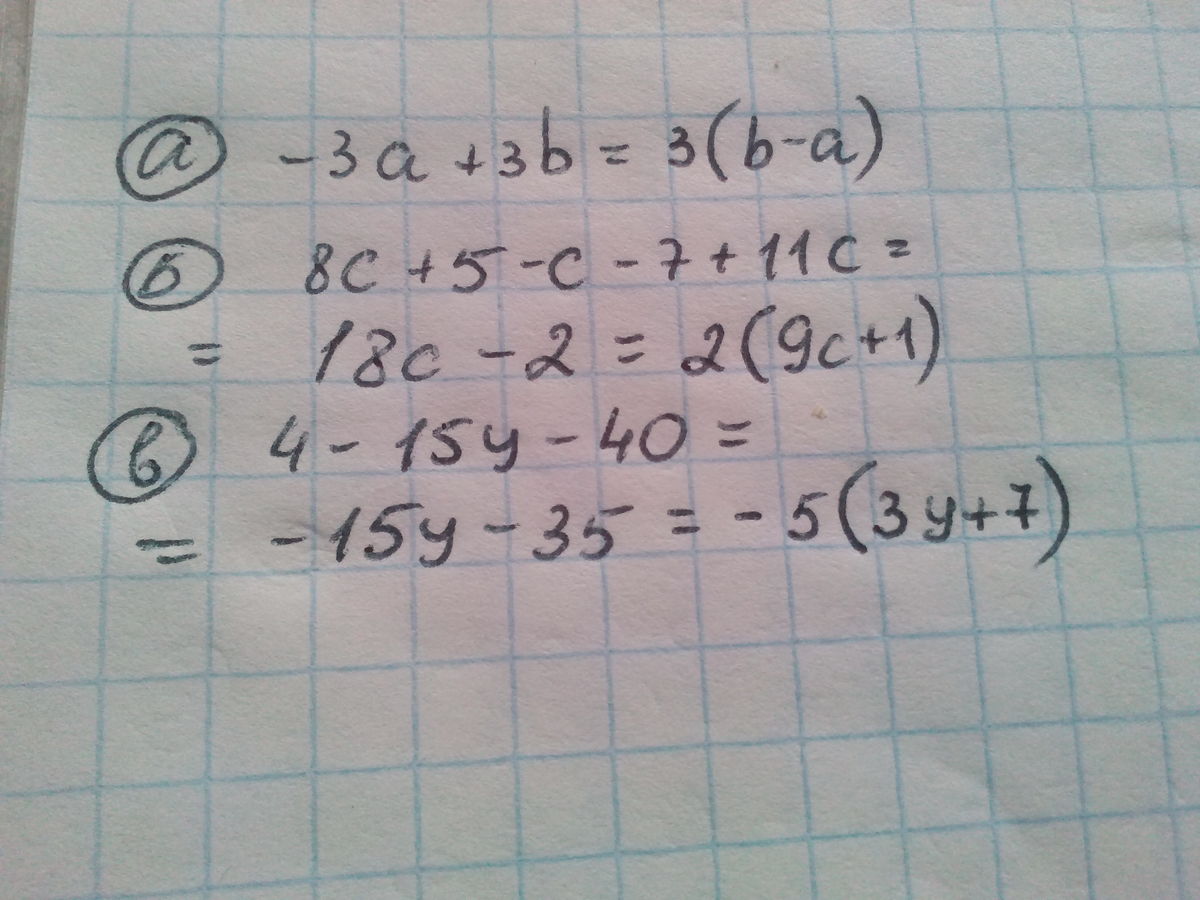 а -3a + 3b = 3(b-a)
б 8c + 5 - c - 7 + 11c =
= 18c - 2 = 2(9c+1)
в 4 - 15y - 40 =
= -15y - 35 = -5(3y+7)